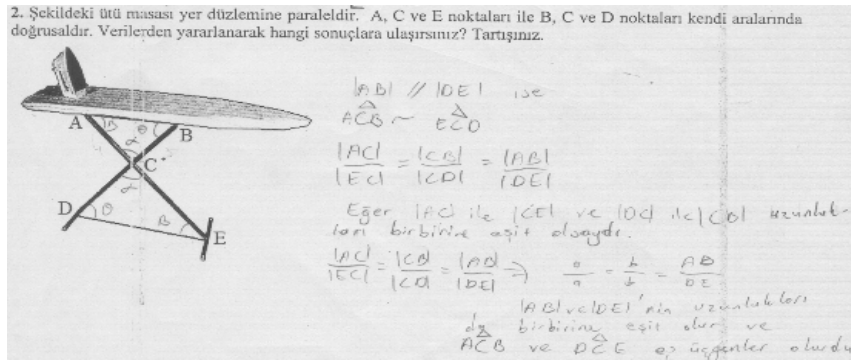 2. Şekildeki ütü masası yer düzlemine paraleldir. A, C ve E noktaları ile B, C ve D noktaları kendi aralarında
doğrusaldır. Verilerden yararlanarak hangi sonuçlara ulaşırsınız? Tartışınız.
|AB| // |DE| ise
ACB ~ ECD
|AC| / |EC| = |CB| / |CD| = |AB| / |DE|
Eğer |AC| ile |CE| ve |DC| ile |CB| uzunluk-
ları birbirine eşit olsaydı.
|AC| / |EC| = |CB| / |CD| = |AB| / |DE| ⇒ a / a = b / b = AB / DE
|AB| ve |DE|'nin uzunlukları
da birbirine eşit olur ve
ACB ve DCE eş üçgenler olurdu
A B θ B
α
C
α
D θ B E